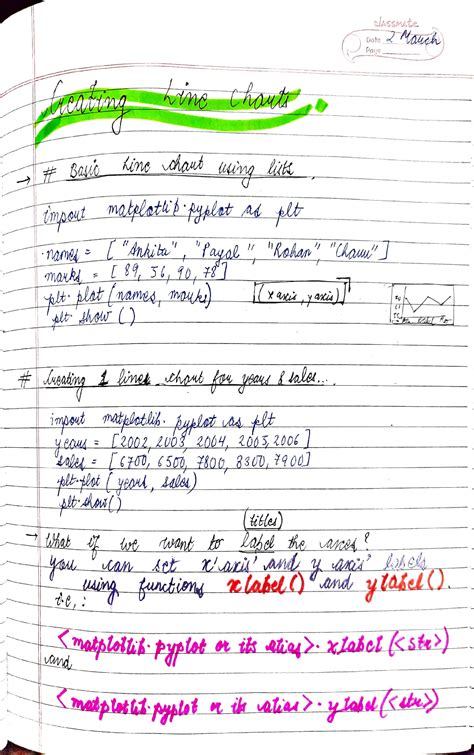 classmate
Date 2 March
Page
Creating Line Charts.
→ # Basic Line chart using lists
import matplotlib.pyplot as plt
names = [ "Ankita", "Payal", "Rohan", "Charu" ]
marks = [ 89, 56, 90, 78 ]
plt.plot (names, marks) [(x axis, y axis)]
plt.show ()
# Creating 1 lines chart for years & sales...
import matplotlib.pyplot as plt
years = [2002, 2003, 2004, 2005, 2006]
sales = [6700, 6500, 7800, 8300, 7900]
plt.plot (years, sales)
plt.show()
(titles)
→ What if we want to label the axes?
You can set x'axis' and y axis' labels
using functions xlabel() and ylabel().
i.e, :
<matplotlib.pyplot or its alias>.xlabel(<str>)
and
<matplotlib.pyplot or its alias>.ylabel(<str>)